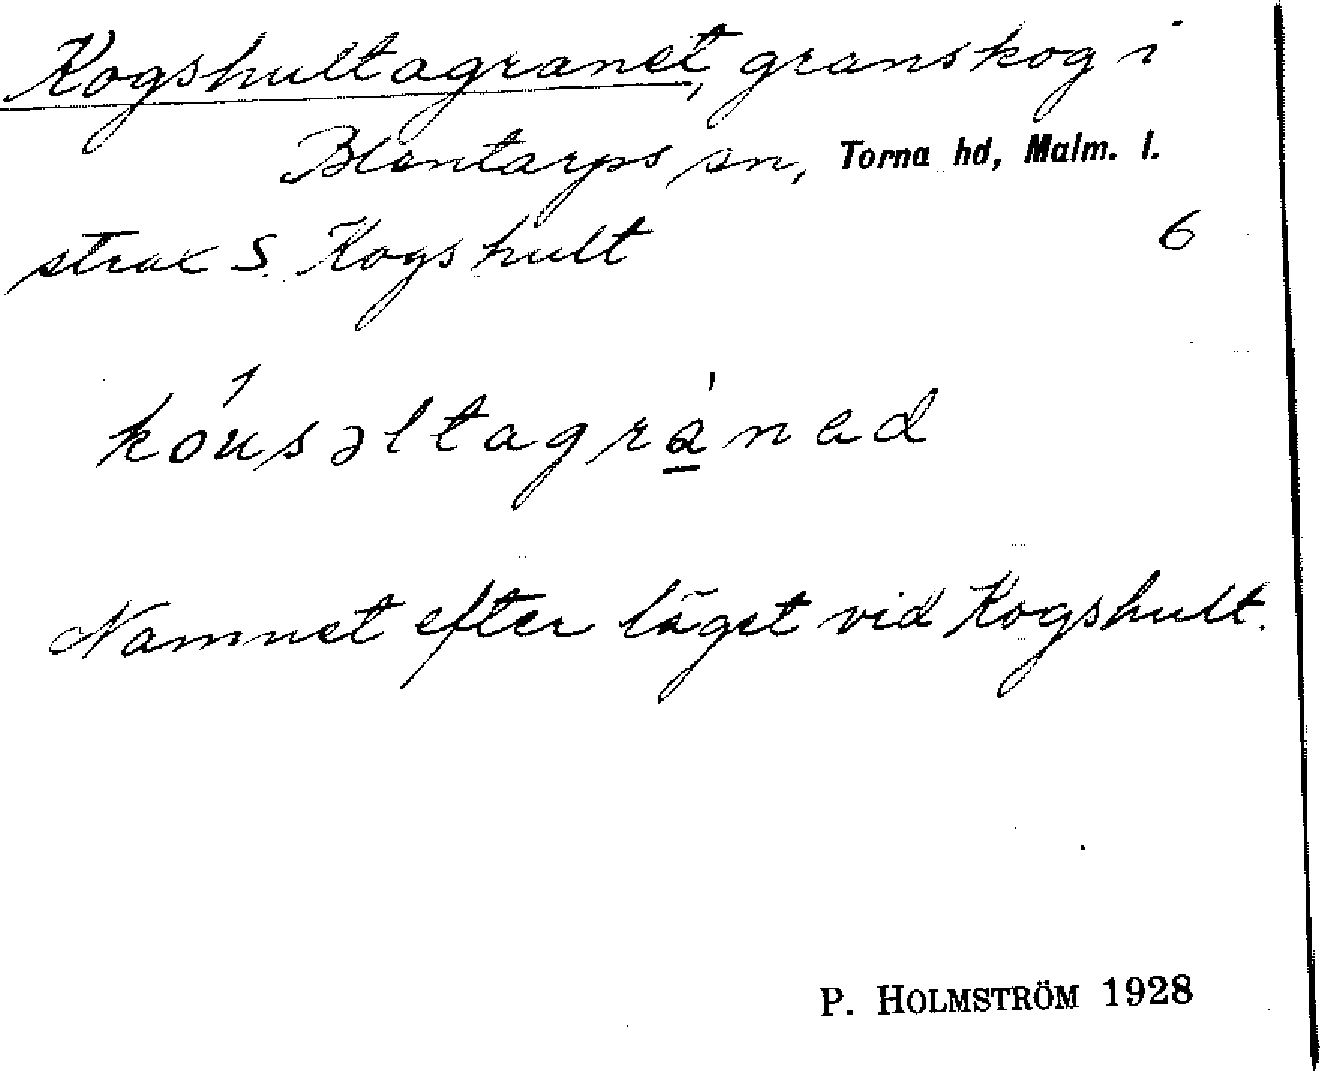 Kogshultagranet, granskog i
Blentarps sn, Torna hd, Malm. l.
strax S. Kogshult 6
kóusəltagrànad
Namnet efter läget vid Kogshult.
P. HOLMSTRÖM 1928